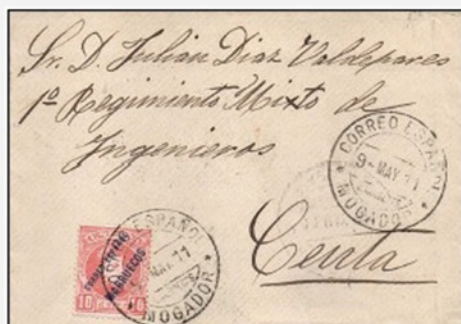 Sr. D. Julian Diaz Valdepares
1º Regimiento Mixto de
Ingenieros
Ceuta
CORREO ESPAÑOL
9-MAY.11
MOGADOR
ESPAÑOL
MAY.11
MOGADOR
MARRUECOS
10 10